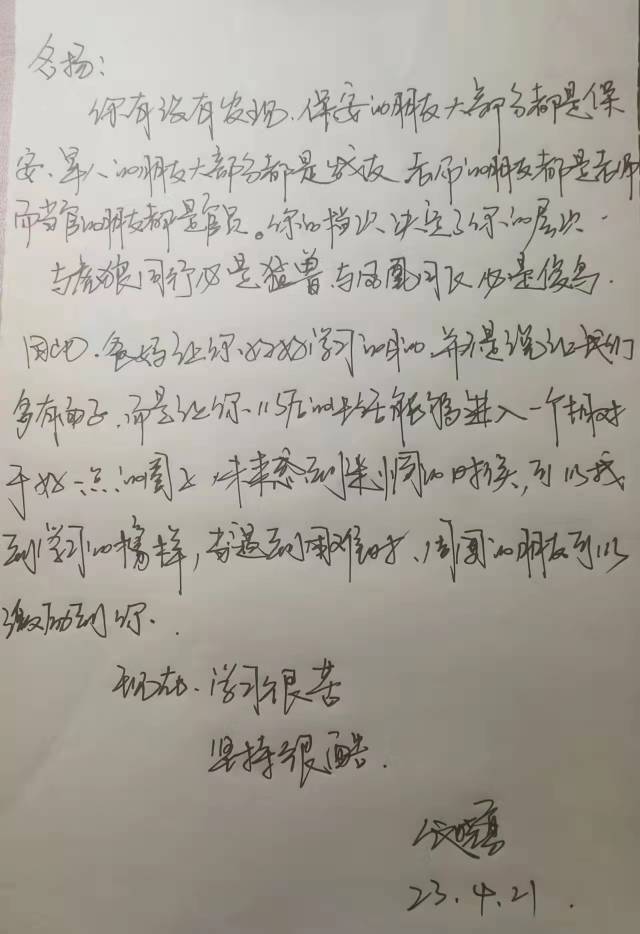 名扬：
你有没有发现、保安的朋友大部分都是保
安、军人的朋友大部分都是战友 老师的朋友都是老师
而当官的朋友都是官员。你的档次决定了你的层次.
与虎狼同行必是猛兽、与凤凰同飞必是俊鸟.
因此、爸妈让你好好学习的目的、并不是说让我们
多有面子、而是让你以后的生活能够进入一个相对
于好一点的圈子、未来感到迷惘的时候、可以找
到学习的榜样，当遇到困难时、周围的朋友可以
激励到你.
现在、学习很苦
坚持很酷.
23.4.21.